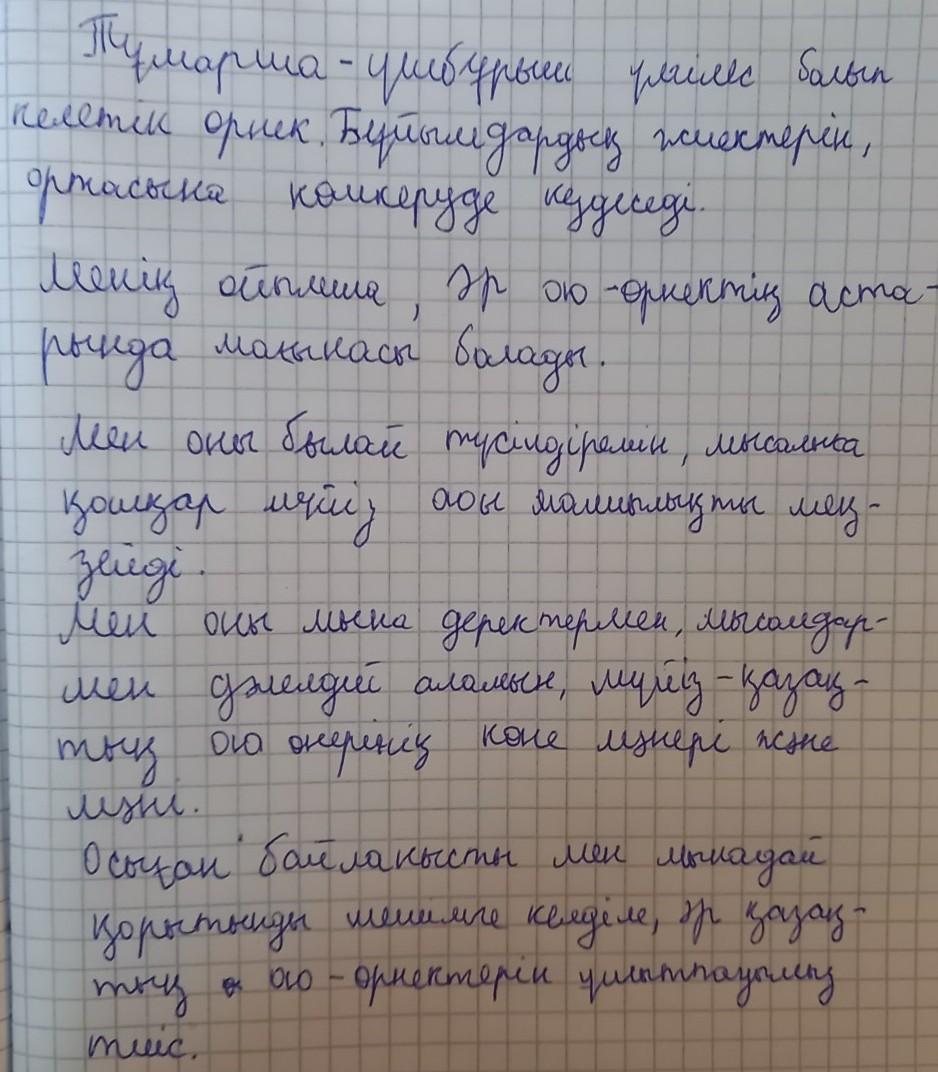 Тұмарша - үшбұрыш үлгілес болып
келетін өрнек. Бұйымдардың жиектерін,
ортасына көмкеруде кездеседі.
Менің ойымша, әр ою-өрнектің аста-
рында мағынасы болады.
Мен оны былай түсіндіремін, мысалыға
қошқар мүйіз аоы молшылықты мең-
зейді.
Мен оны мына деректермен, мысалдар-
мен дәлелдей аламын, мүйіз-қазақ-
тың ою өнерінің көне мәнері және
мәні.
Осыған байланысты мен мынадай
қорытынды шешімге келдім, әр қазақ-
тың ою-өрнектерін ұмытпауымыз
тиіс.